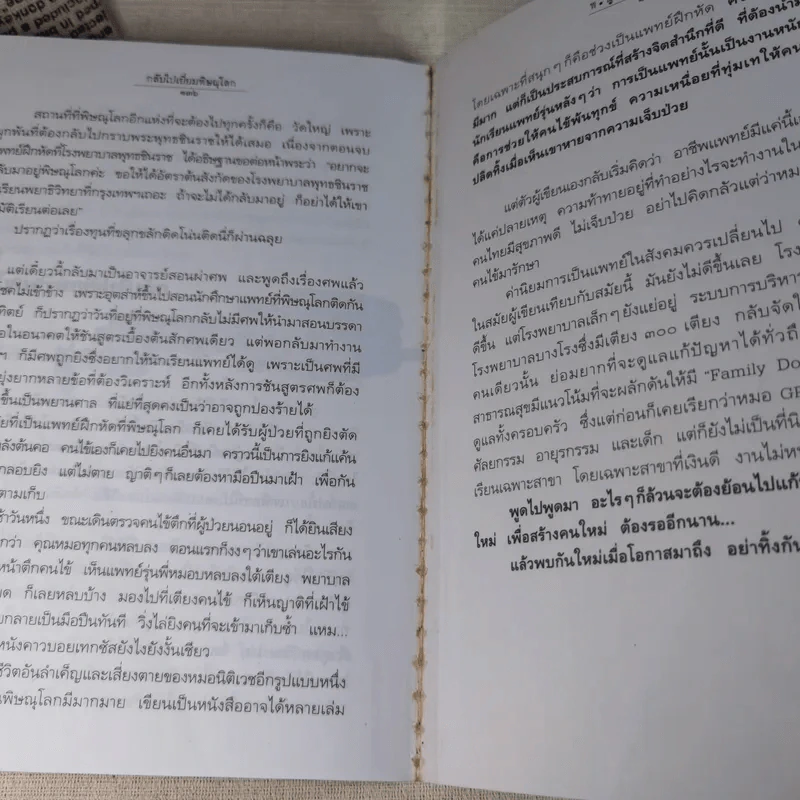 กลับไปเยี่ยมพิษณุโลก
๑๓๖
สถานที่ที่พิษณุโลกอีกแห่งที่จะต้องไปทุกครั้งก็คือ วัดใหญ่ เพราะ
ผูกพันที่ต้องกลับไปกราบพระพุทธชินราชให้ได้เสมอ เนื่องจากตอนจบ
แพทย์ฝึกหัดที่โรงพยาบาลพุทธชินราช ได้อธิษฐานขอต่อหน้าพระว่า "อยากจะ
กลับมาอยู่พิษณุโลกค่ะ ขอให้ได้อัตราต้นสังกัดของโรงพยาบาลพุทธชินราช
เรียนพยาธิวิทยาที่กรุงเทพฯเถอะ ถ้าจะไม่ได้กลับมาอยู่ ก็อย่าได้ให้เขา
มัติเรียนต่อเลย"
ปรากฏว่าเรื่องทุนที่ขลุกขลักติดโน่นติดนี่ก็ผ่านฉลุย
แต่เดี๋ยวนี้กลับมาเป็นอาจารย์สอนผ่าศพ และพูดถึงเรื่องศพแล้ว
โชคไม่เข้าข้าง เพราะอุตส่าห์ขึ้นไปสอนนักศึกษาแพทย์ที่พิษณุโลกติดกัน
ทิตย์ ก็ปรากฏว่าวันที่อยู่ที่พิษณุโลกกลับไม่มีศพให้นำมาสอนบรรดา
อในอนาคตให้ชันสูตรเบื้องต้นสักศพเดียว แต่พอกลับมาทำงาน
ฯ ก็มีศพถูกยิงซึ่งอยากให้นักเรียนแพทย์ได้ดู เพราะเป็นศพที่มี
ยุ่งยากหลายข้อที่ต้องวิเคราะห์ อีกทั้งหลังการชันสูตรศพก็ต้อง
ขึ้นเป็นพยานศาล ที่แย่ที่สุดคงเป็นว่าอาจถูกปองร้ายได้
ยที่เป็นแพทย์ฝึกหัดที่พิษณุโลก ก็เคยได้รับผู้ป่วยที่ถูกยิงตัด
ลังต้นคอ คนไข้เองก็เคยไปยิงคนอื่นมา คราวนี้เป็นการยิงแก้แค้น
กลอบยิง แต่ไม่ตาย ญาติๆก็เลยต้องหามือปืนมาเฝ้า เพื่อกัน
ตามเก็บ
ช้าวันหนึ่ง ขณะเดินตรวจคนไข้ตึกที่ผู้ป่วยนอนอยู่ ก็ได้ยินเสียง
กว่า คุณหมอทุกคนหลบลง ตอนแรกก็งงๆว่าเขาเล่นอะไรกัน
หน้าตึกคนไข้ เห็นแพทย์รุ่นพี่หมอบหลบลงใต้เตียง พยาบาล
ด ก็เลยหลบบ้าง มองไปที่เตียงคนไข้ ก็เห็นญาติที่เฝ้าไข้
ยกลายเป็นมือปืนทันที วิ่งไล่ยิงคนที่จะเข้ามาเก็บซ้ำ แหม...
หนังคาวบอยเทกซัสยังไงยังงั้นเชียว
ชีวิตอันลำเค็ญและเสี่ยงตายของหมอนิติเวชอีกรูปแบบหนึ่ง
พิษณุโลกมีมากมาย เขียนเป็นหนังสืออาจได้หลายเล่ม
โดยเฉพาะที่สนุกๆ ก็คือช่วงเป็นแพทย์ฝึกหัด
มีมาก แต่ก็เป็นประสบการณ์ที่สร้างจิตสำนึกที่ดี ที่ต้องนำม
นักเรียนแพทย์รุ่นหลังๆว่า การเป็นแพทย์นั้นเป็นงานหนัก
คือการช่วยให้คนไข้พ้นทุกข์ ความเหนื่อยที่ทุ่มเทให้คน
ปลิดทิ้งเมื่อเห็นเขาหายจากความเจ็บป่วย
แต่ตัวผู้เขียนเองกลับเริ่มคิดว่า อาชีพแพทย์มีแค่นี้
ได้แค่ปลายเหตุ ความท้าทายอยู่ที่ทำอย่างไรจะทำงานใน
คนไทยมีสุขภาพดี ไม่เจ็บป่วย อย่าไปคิดกลัวแต่ว่าหมอ
คนไข้มารักษา
ค่านิยมการเป็นแพทย์ในสังคมควรเปลี่ยนไป
ในสมัยผู้เขียนเทียบกับสมัยนี้ มันยังไม่ดีขึ้นเลย โรง
ดีขึ้น แต่โรงพยาบาลเล็กๆยังแย่อยู่ ระบบการบริหาร
โรงพยาบาลบางโรงซึ่งมีเตียง ๓๐๐ เตียง กลับจัดให้
คนเดียวนั้น ย่อมยากที่จะดูแลแก้ปัญหาได้ทั่วถึ
สาธารณสุขมีแนวโน้มที่จะผลักดันให้มี "Family Do
ดูแลทั้งครอบครัว ซึ่งแต่ก่อนก็เคยเรียกว่าหมอ GP
ศัลยกรรม อายุรกรรม และเด็ก แต่ก็ยังไม่เป็นที่นิ
เรียนเฉพาะสาขา โดยเฉพาะสาขาที่เงินดี งานไม่ห
พูดไปพูดมา อะไรๆก็ล้วนจะต้องย้อนไปแก้
ใหม่ เพื่อสร้างคนใหม่ ต้องรออีกนาน...
แล้วพบกันใหม่เมื่อโอกาสมาถึง อย่าทิ้งกัน